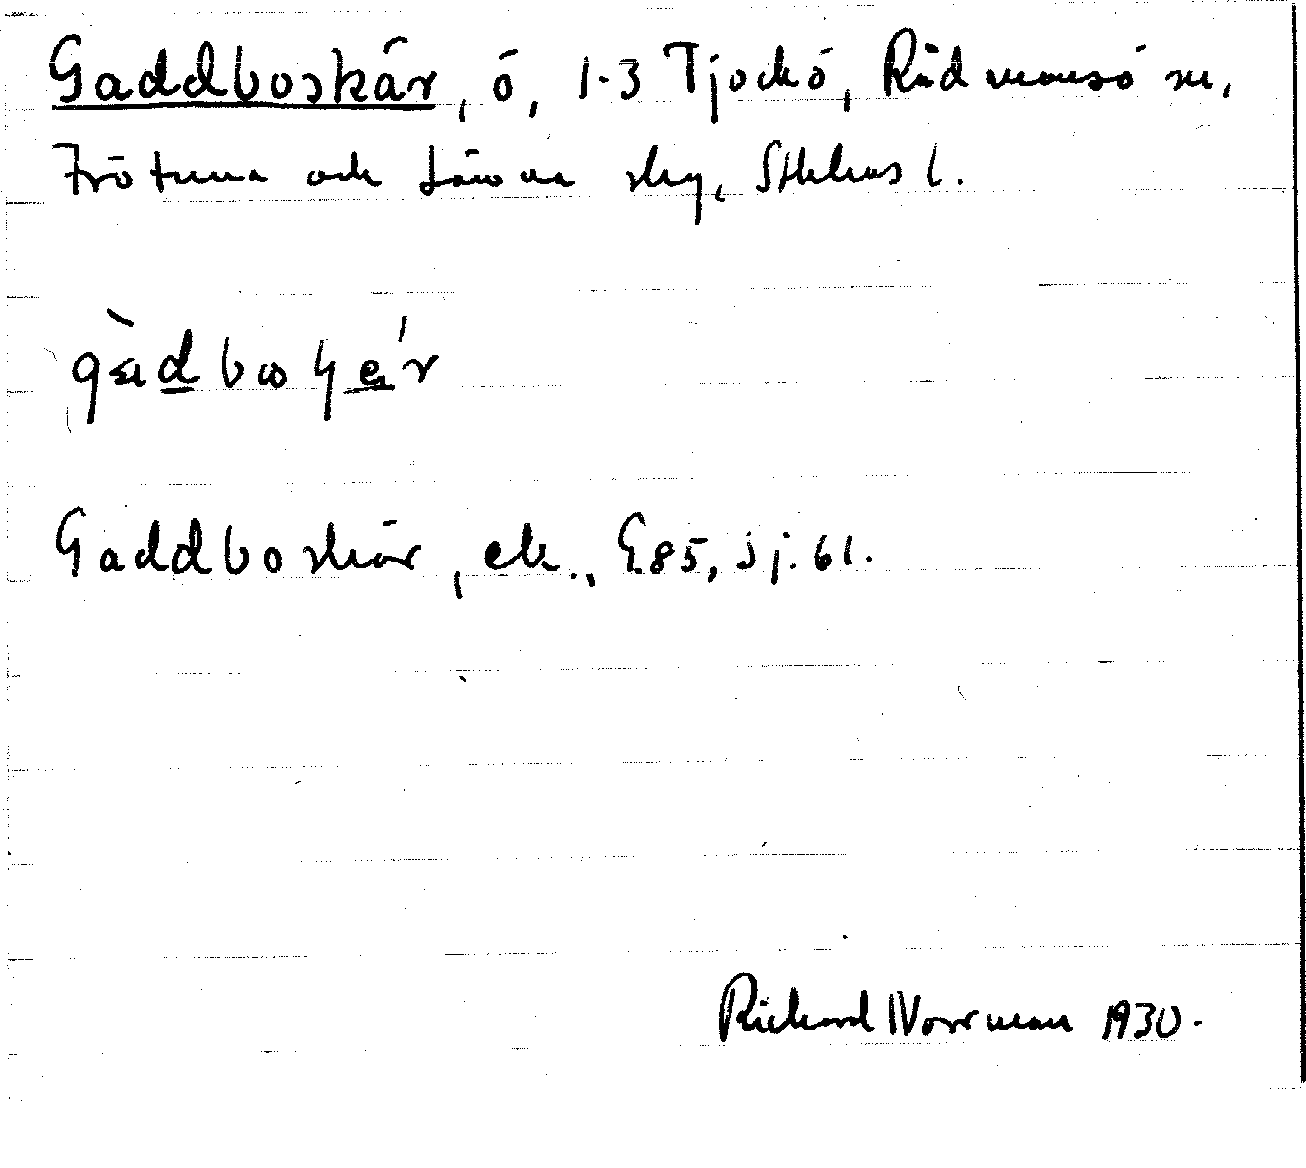 Gaddboskär, ö, 1-3 Tjockö, Rådmansö sn,
Frötuna och Länna skg, Sthlms l.
Gaddboskär, ek., E.85, sj. 61.
Richard Norrman 1930.